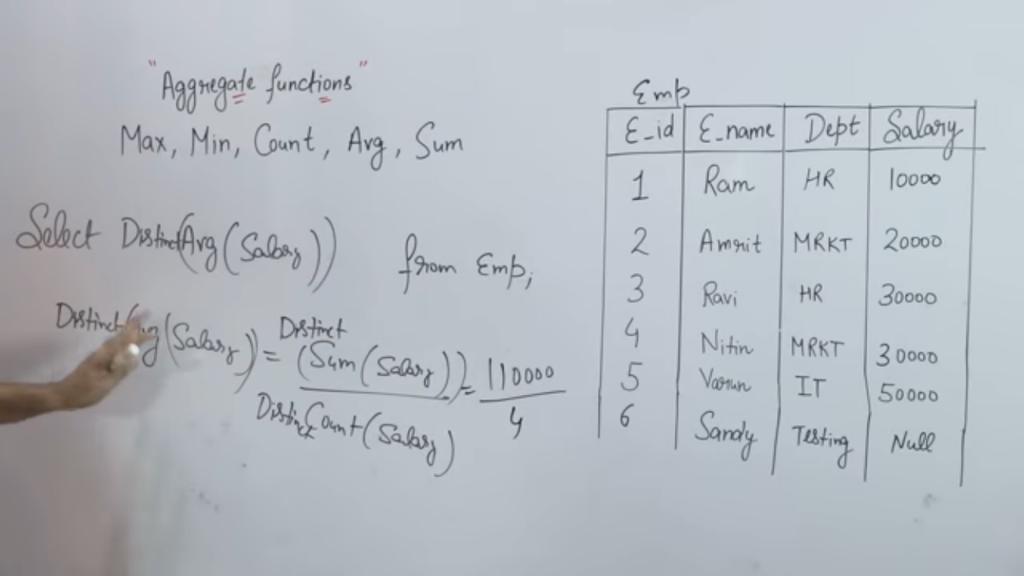 "Aggregate functions"
Max, Min, Count, Avg, Sum
Select Distinct(Avg(Salary)) from Emp;
Distinct(Avg(Salary)) = Distinct
(Sum(Salary)) = 110000
Distinct Count(Salary) 4
Emp
E_id E_name Dept Salary
1 Ram HR 10000
2 Amrit MRKT 20000
3 Ravi HR 30000
4 Nitin MRKT 30000
5 Varun IT 50000
6 Sandy Testing Null